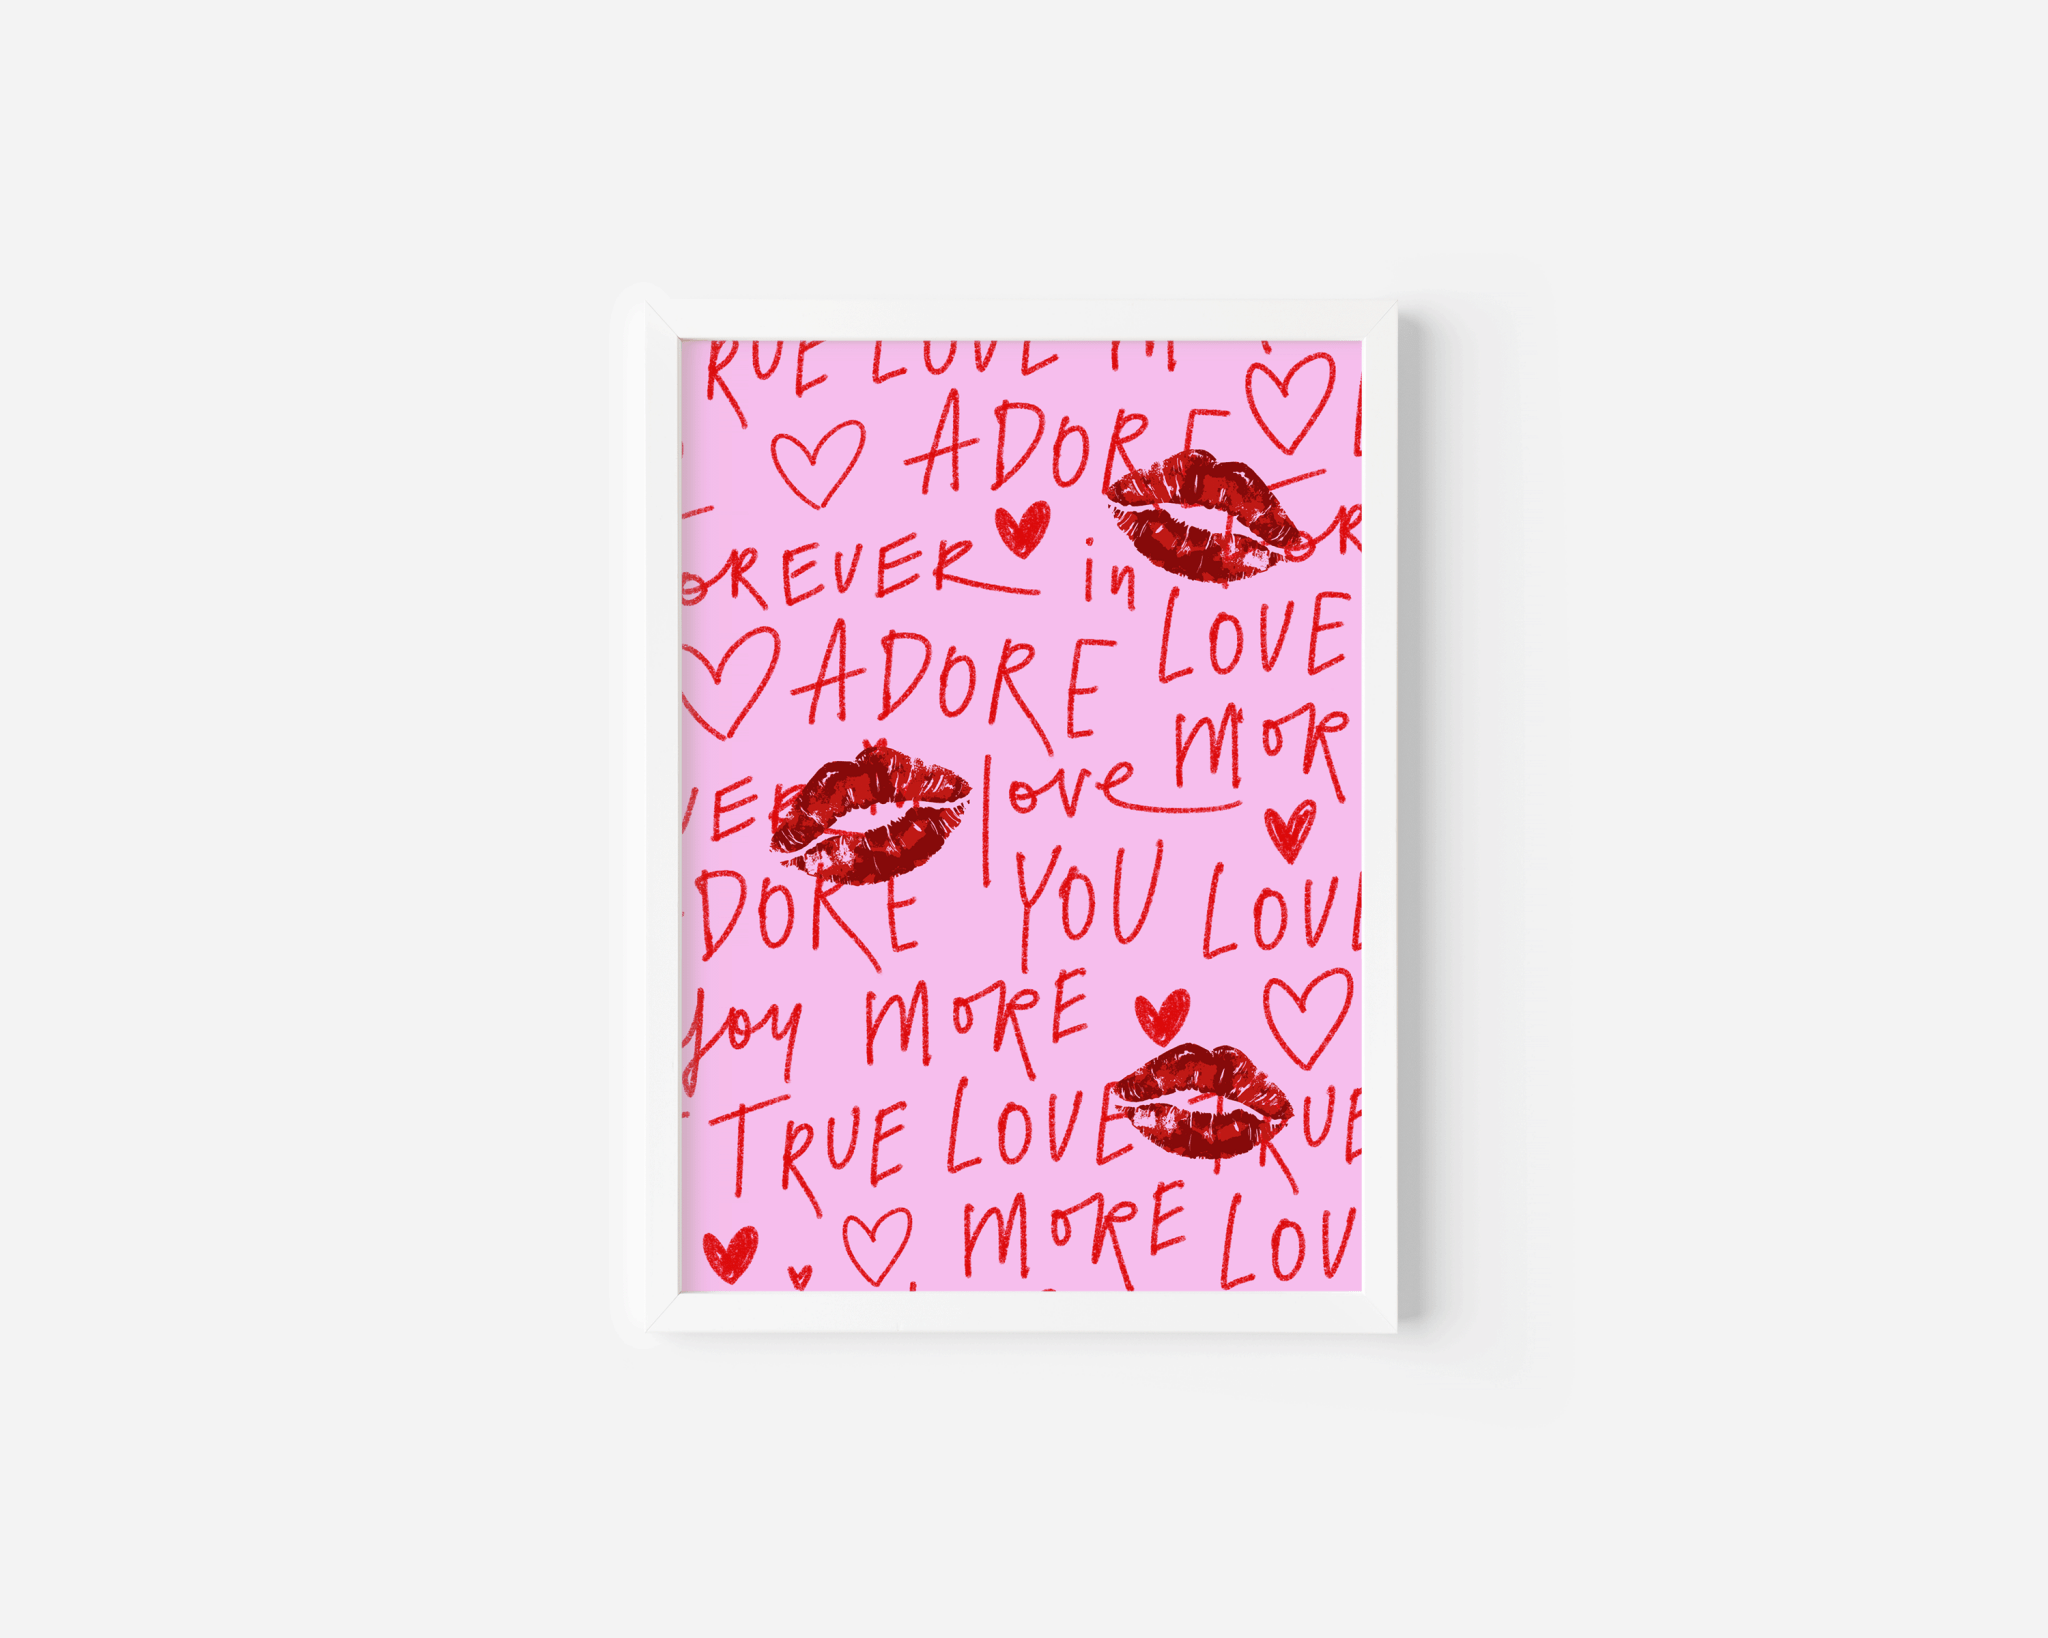 RUE LOVE M
ADORE
FOREVER in OR
LOVE
ADORE
MOR
VER love
DORE YOU LOVE
joy MORE
TRUE LOVE TRUE
MORE LOV